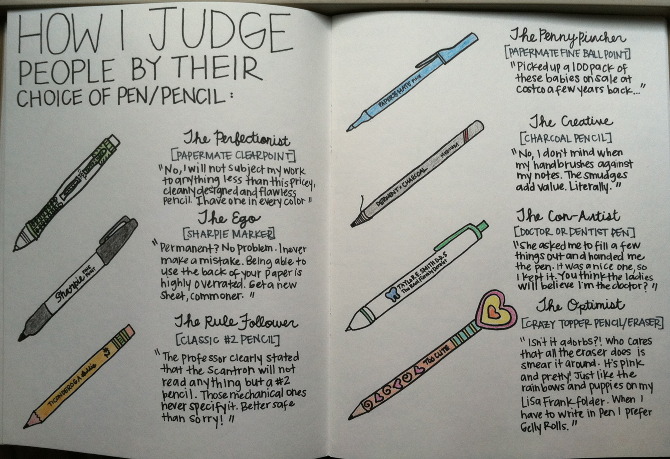 HOW I JUDGE
PEOPLE BY THEIR
CHOICE OF PEN/PENCIL:
The Perfectionist
[PAPERMATE CLEARPOINT]
"No, I will not subject my work
to anything less than this pricey,
cleanly designed and flawless
Pencil. I have one in every color"
The Ego
[SHARPIE MARKER]
"Permanent? No problem. I never
make a mistake. Being able to
use the back of your paper is
highly overrated. Get a new
sheet, commoner."
Sharpie
The Rule Follower
[CLASSIC #2 PENCIL]
"The professor clearly stated
that the Scantron will not
read anything but a #2
pencil. Those mechanical ones
never specify it. Better safe
than sorry!"
TICONDEROGA
The Pennypincher
[PAPERMATE FINE BALLPOINT]
"Picked up a 100 pack of
these babies on sale at
costco a few years back..."
PAPERMATE FINE
The Creative
[CHARCOAL PENCIL]
"No, I don't mind when
my hand brushes against
my notes. The smudges
add value. Literally."
DERWENT • CHARCOAL MEDIUM
The Con-Artist
[DOCTOR OR DENTIST PEN]
"She asked me to fill a few
things out and handed me
the pen. It was a nice one, so
I kept it. You think the ladies
will believe I'm the doctor?"
The Optimist
[CRAZY TOPPER PENCIL/ERASER]
"Isn't it adorbs?! Who cares
that all the eraser does is
smear it around. It's pink
and pretty! Just like the
rainbows and puppies on my
Lisa Frank folder. When I
have to write in Pen I prefer
Gelly Rolls."
TOO CUTE